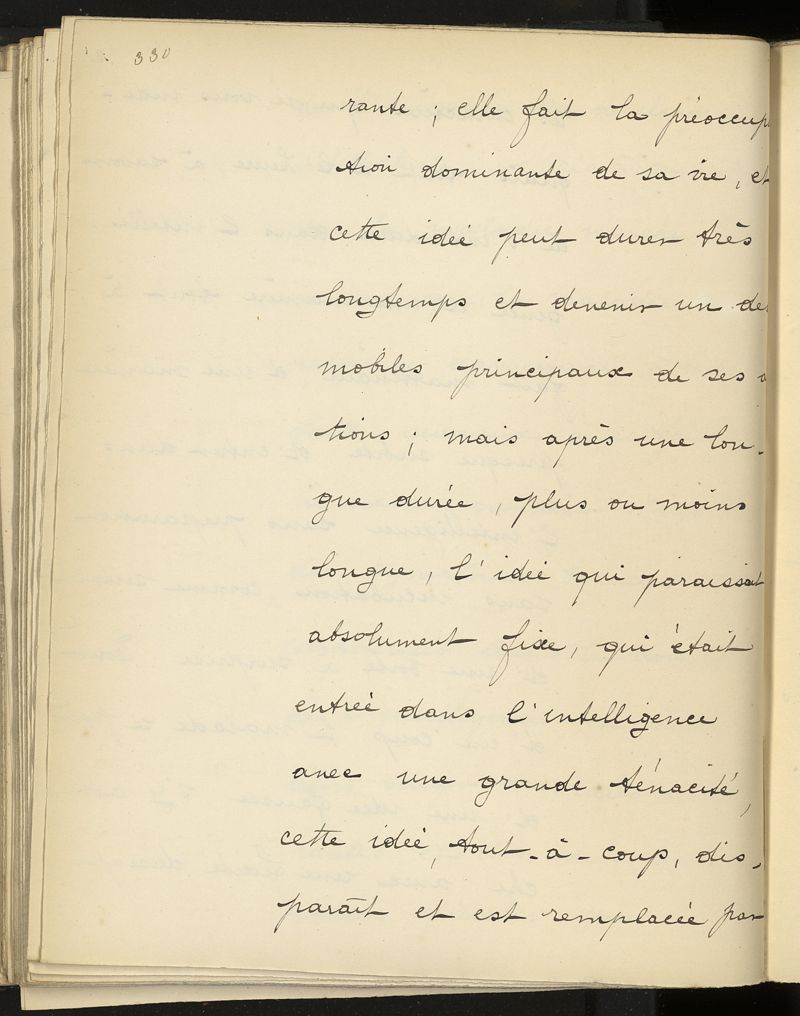 330
rante ; elle fait la préoccup
tion dominante de sa vie, et
cette idée peut durer très
longtemps et devenir un de
mobiles principaux de ses
tions ; mais après une lon-
gue durée, plus ou moins
longue, l'idée qui paraissait
absolument fixe, qui était
entrée dans l'intelligence
avec une grande ténacité,
cette idée, tout-à-coup, dis-
paraît et est remplacée par